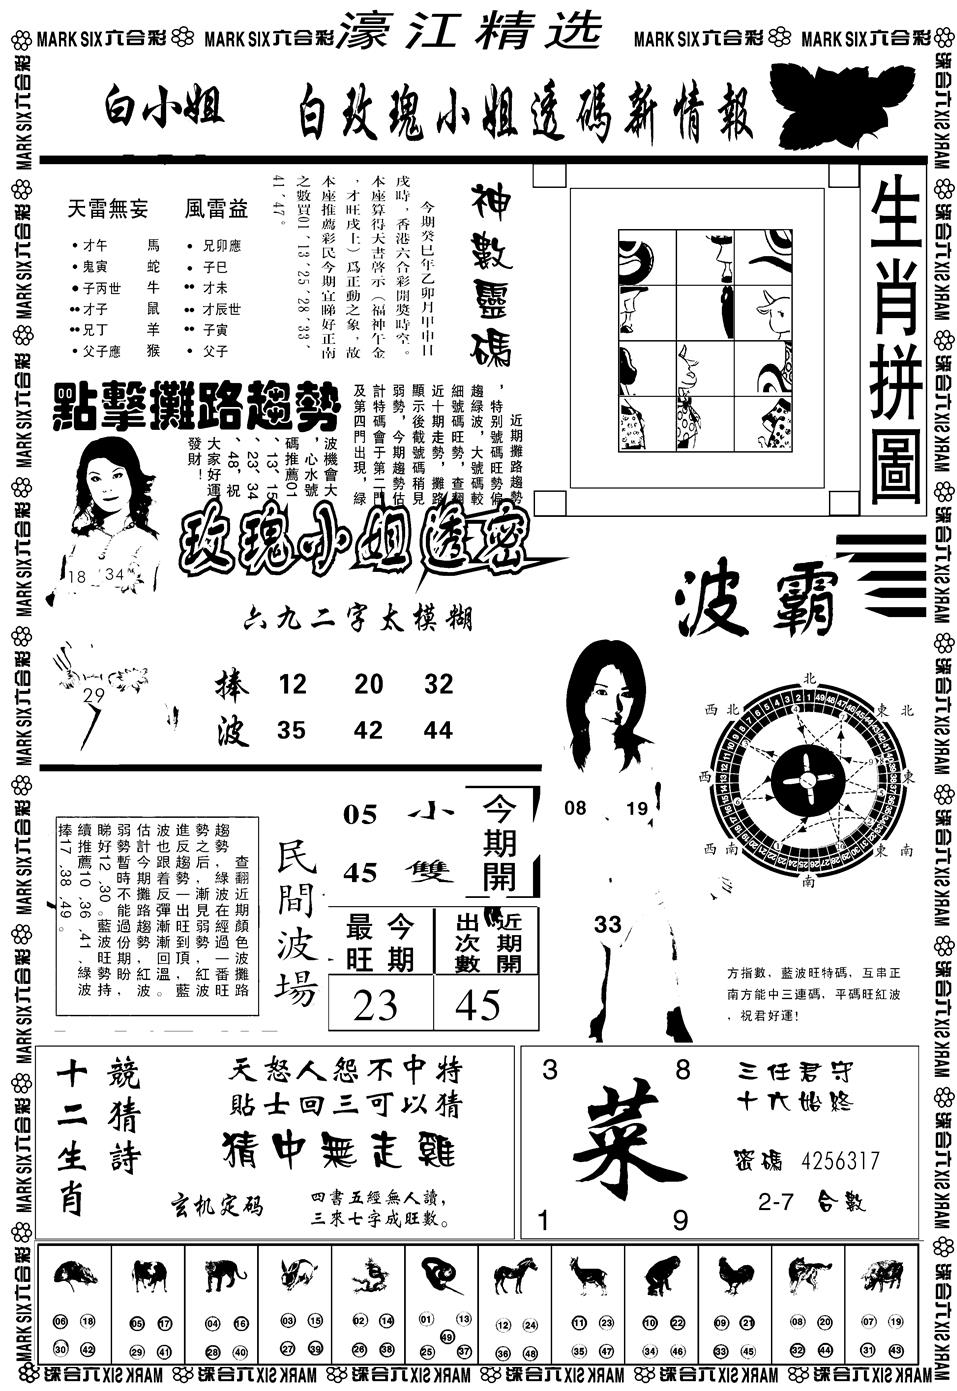 MARK SIX六合彩 MARK SIX六合彩 濠江精选 MARK SIX六合彩 MARK SIX六合彩
白小姐 白玫瑰小姐透碼新情報
生肖拼圖
神數靈碼
今期癸巳年乙卯月甲申日
戌時，香港六合彩開獎時空。
本座算得天書啓示（福神午金
，才旺戌土）爲正動之象，故
本座推薦彩民今期宜睇好正南
之數買01、13、25、28、33、
41、47。
風雷益
• 兄卯應
• 子巳
•• 才未
•• 才辰世
•• 子寅
• 父子
天雷無妄
• 才午 馬
• 鬼寅 蛇
• 子丙世 牛
•• 才子 鼠
•• 兄丁 羊
• 父子應 猴
點擊攤路趨勢
近期攤路趨勢
，特别號碼旺勢偏
趨綠波，大號碼較
細號碼旺勢，查翻
近十期走勢，攤路
顯示後截號碼稍見
弱勢，今期趨勢估
計特碼會于第二門
及第四門出現，綠
波機會大
，心水號
碼推薦01
、13、15
、23、34
、48，祝
大家好運
發財！
18 34
29
玫瑰小姐透密
六九二字太模糊
捧 12 20 32
波 35 42 44
波霸
北
東北
東
東南
南
西南
西
西北
08 19
33
方指數，藍波旺特碼，互串正
南方能中三連碼，平碼旺紅波
，祝君好運!
查翻近期顏色波攤路
趨勢，綠波在經過一番旺
勢之后，漸見弱勢，紅波
進反趨勢一出旺到頂，藍
波也跟着反彈漸漸回溫。
估計今期攤路趨勢，紅波
弱勢暫時不能過份期盼，
睇好12、30。藍波旺勢持
續推薦10、36、41，綠波
捧17、38、49。
民間波場
05 小
45 雙
今期開
今期最旺
近期開出次數
23 45
競猜詩
十二生肖
天怒人怨不中特
貼士回三可以猜
猜中無走雞
玄机定码
四書五經無人讀，
三來七字成旺數。
3 8
菜
1 9
三任君守
十六始終
密碼 4256317
2-7 合數
06 18 30 42
05 17 29 41
04 16 28 40
03 15 27 39
02 14 26 38
01 13 49 25 37
12 24 36 48
11 23 35 47
10 22 34 46
09 21 33 45
08 20 32 44
07 19 31 43